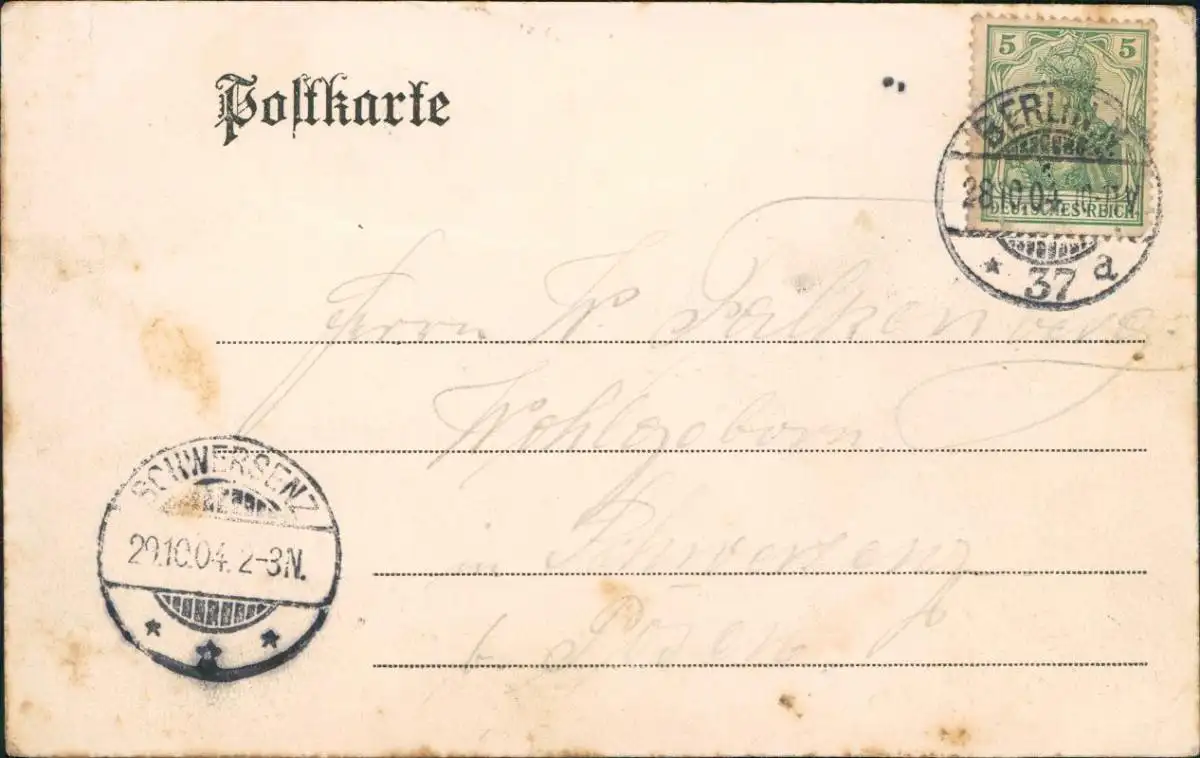 Postkarte
5 5
DEUTSCHES REICH
BERLIN
28.10.04. 10-11V
* 37 a
Herrn W. Falkenberg
Wohlgeborn
in Schwersenz
b. Posen
SCHWERSENZ
29.10.04. 2-3N.